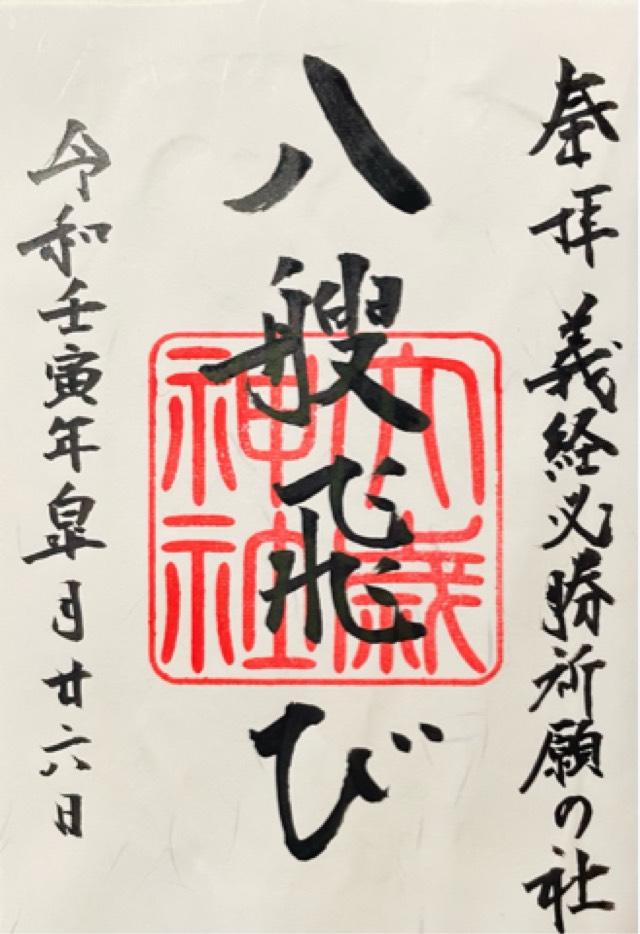 奉拝 義経必勝祈願の社
八艘飛び
大歳神社
令和壬寅年皐月廿六日